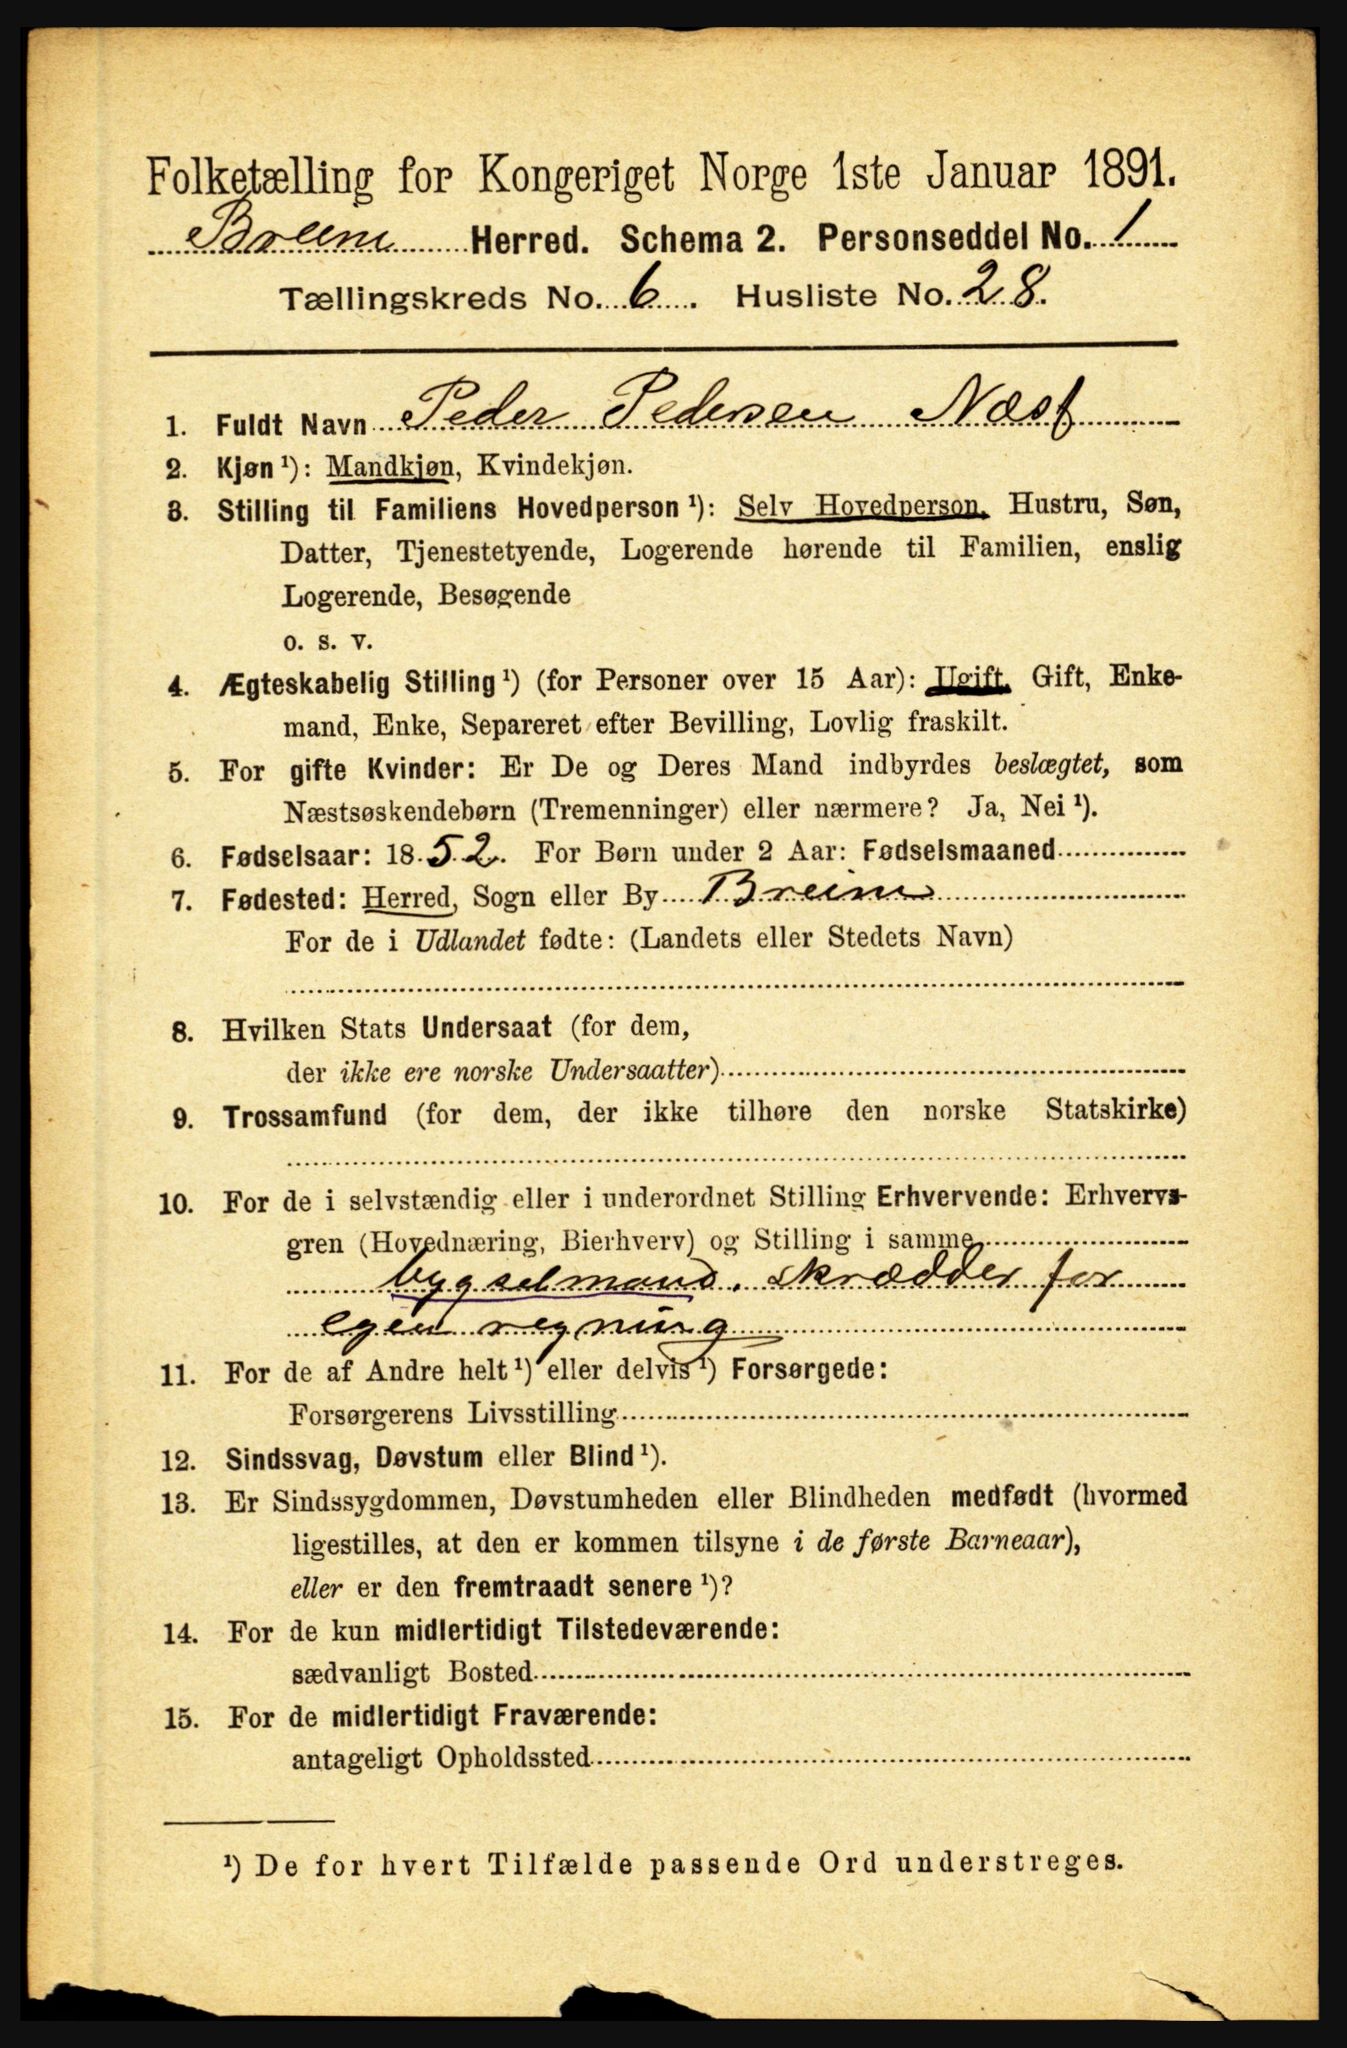 Folketælling for Kongeriget Norge 1ste Januar 1891.
Breim Herred. Schema 2. Personseddel No. 1
Tællingskreds No. 6. Husliste No. 28.
1. Fuldt Navn Peder Pedersen Næss
2. Kjøn ¹): Mandkjøn, Kvindekjøn.
3. Stilling til Familiens Hovedperson ¹): Selv Hovedperson, Hustru, Søn,
Datter, Tjenestetyende, Logerende hørende til Familien, enslig
Logerende, Besøgende
o. s. v.
4. Ægteskabelig Stilling ¹) (for Personer over 15 Aar): Ugift, Gift, Enke-
mand, Enke, Separeret efter Bevilling, Lovlig fraskilt.
5. For gifte Kvinder: Er De og Deres Mand indbyrdes beslægtet, som
Næstsøskendebørn (Tremenninger) eller nærmere? Ja, Nei ¹).
6. Fødselsaar: 1852. For Børn under 2 Aar: Fødselsmaaned
7. Fødested: Herred, Sogn eller By Breim
For de i Udlandet fødte: (Landets eller Stedets Navn)
8. Hvilken Stats Undersaat (for dem,
der ikke ere norske Undersaatter)
9. Trossamfund (for dem, der ikke tilhøre den norske Statskirke)
10. For de i selvstændig eller i underordnet Stilling Erhvervende: Erhvervs-
gren (Hovednæring, Bierhverv) og Stilling i samme
bygselmand. skrædder for
egen regning
11. For de af Andre helt ¹) eller delvis ¹) Forsørgede:
Forsørgerens Livsstilling
12. Sindssvag, Døvstum eller Blind ¹).
13. Er Sindssygdommen, Døvstumheden eller Blindheden medfødt (hvormed
ligestilles, at den er kommen tilsyne i de første Barneaar),
eller er den fremtraadt senere ¹)?
14. For de kun midlertidigt Tilstedeværende:
sædvanligt Bosted
15. For de midlertidigt Fraværende:
antageligt Opholdssted
¹) De for hvert Tilfælde passende Ord understreges.